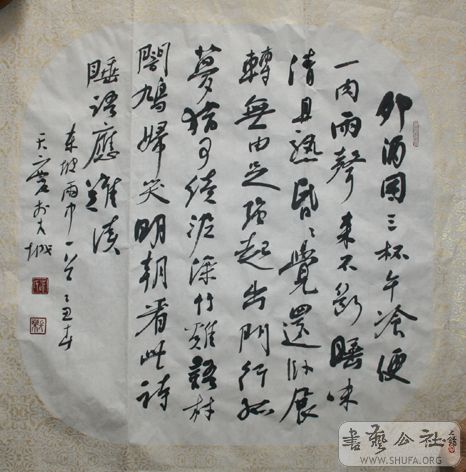 卯酒困三杯午飡便
一肉雨聲來不斷睡味
清且熟昏々覺還卧展
轉無由足強起出門行孤
夢猶可續泥深竹雞語村
闇鳩婦哭明朝看此詩
睡語應難讀
東坡雨中一首
書藝公社
WWW.SHUFA.ORG